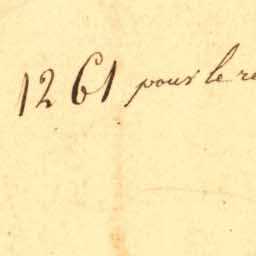 1261 pour le